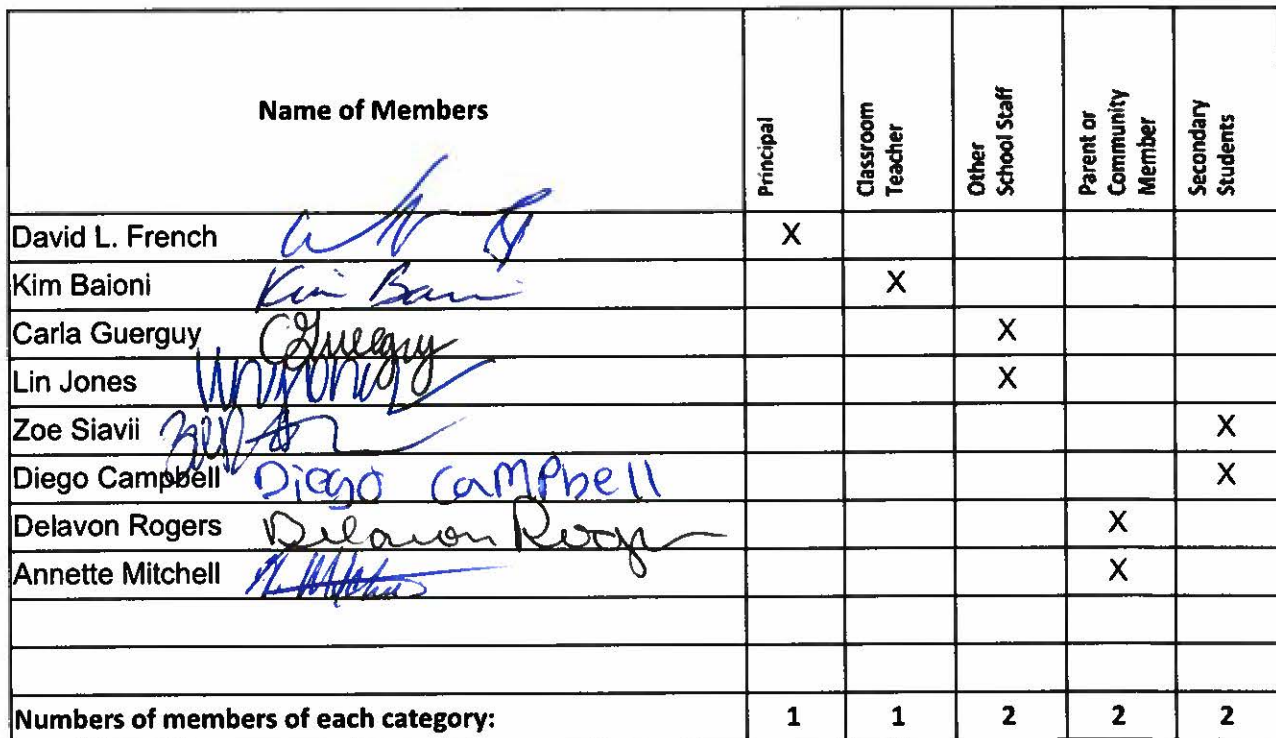 Name of Members Principal Classroom Teacher Other School Staff Parent or Community Member Secondary Students
David L. French X
Kim Baioni Kim X
Carla Guerguy CGuerguy X
Lin Jones X
Zoe Siavii X
Diego Campbell Diego CaMPbell X
Delavon Rogers Delavon Rogers X
Annette Mitchell X
Numbers of members of each category: 1 1 2 2 2